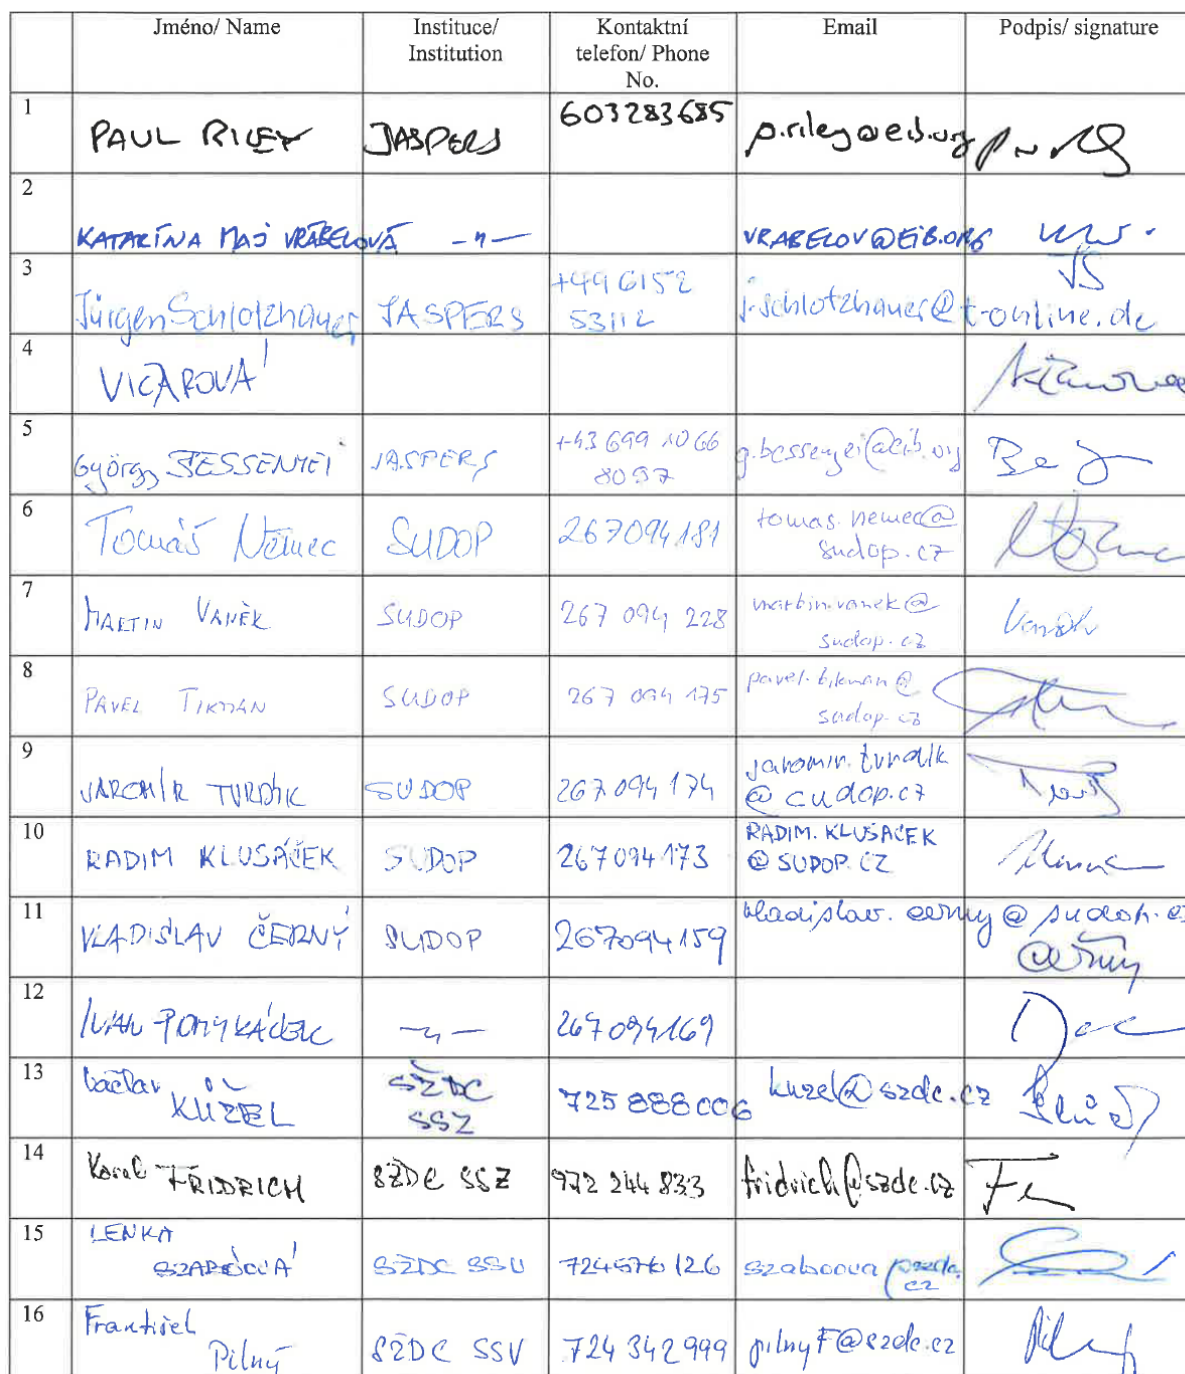 Jméno/ Name Instituce/ Institution Kontaktní telefon/ Phone No. Email Podpis/ signature
1 PAUL RILEY JASPERS 603283685 p.riley@eib.org
2 KATARÍNA MAJ VRÁBELOVÁ -"- VRABELOV@EIB.ORG
3 Jürgen Schlotzhauer JASPERS +49 6152 53112 j-schlotzhauer@t-online.de JS
4 VIČAROVÁ
5 György BESSENYEI JASPERS +43 699 1066 8097 g.bessenyei@eib.org
6 Tomáš Němec SUDOP 267094181 tomas.nemec@sudop.cz
7 MARTIN VANĚK SUDOP 267 094 228 martin.vanek@sudop.cz
8 PAVEL TIKMAN SUDOP 267 094 175 pavel.tikman@sudop.cz
9 JAROMÍR TVRDÍK SUDOP 267 094 174 jaromir.tvrdik@sudop.cz
10 RADIM KLUSÁČEK SUDOP 267094173 RADIM.KLUSACEK@SUDOP.CZ
11 VLADISLAV ČERNÝ SUDOP 267094159 vladislav.cerny@sudop.cz Černý
12 IVAN POMYKÁČEK -"- 267094169
13 Václav KŮŽEL SŽDC SSZ 725 888 006 kuzel@szdc.cz
14 Karel FRIDRICH SŽDC SSZ 972 244 833 fridrich@szdc.cz
15 LENKA SZABÓOVÁ SŽDC SSV 724576126
16 František Pilný SŽDC SSV 724 342 999 pilnyF@szdc.cz